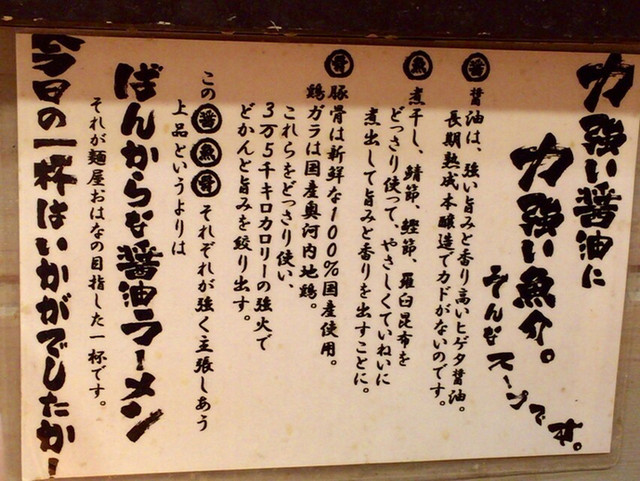 力強い醤油に
力強い魚介。
そんなスープです。
醤 醤油は、強い旨みと香り高いヒゲタ醤油。
長期熟成本醸造でカドがないのです。
魚 煮干し、鯖節、鰹節、羅臼昆布を
どっさり使って、やさしくていねいに
煮出しして旨みと香りを出すことに。
骨 豚骨は新鮮な100%国産使用。
鶏ガラは国産奥河内地鶏。
これらをどっさり使い、
3万5千キロカロリーの強火で
どかんと旨みを絞り出す。
この醤魚骨それぞれが強く主張しあう
上品というよりは
ばんからな醤油ラーメン
それが麺屋おはなの目指した一杯です。
今日の一杯はいかがでしたか!